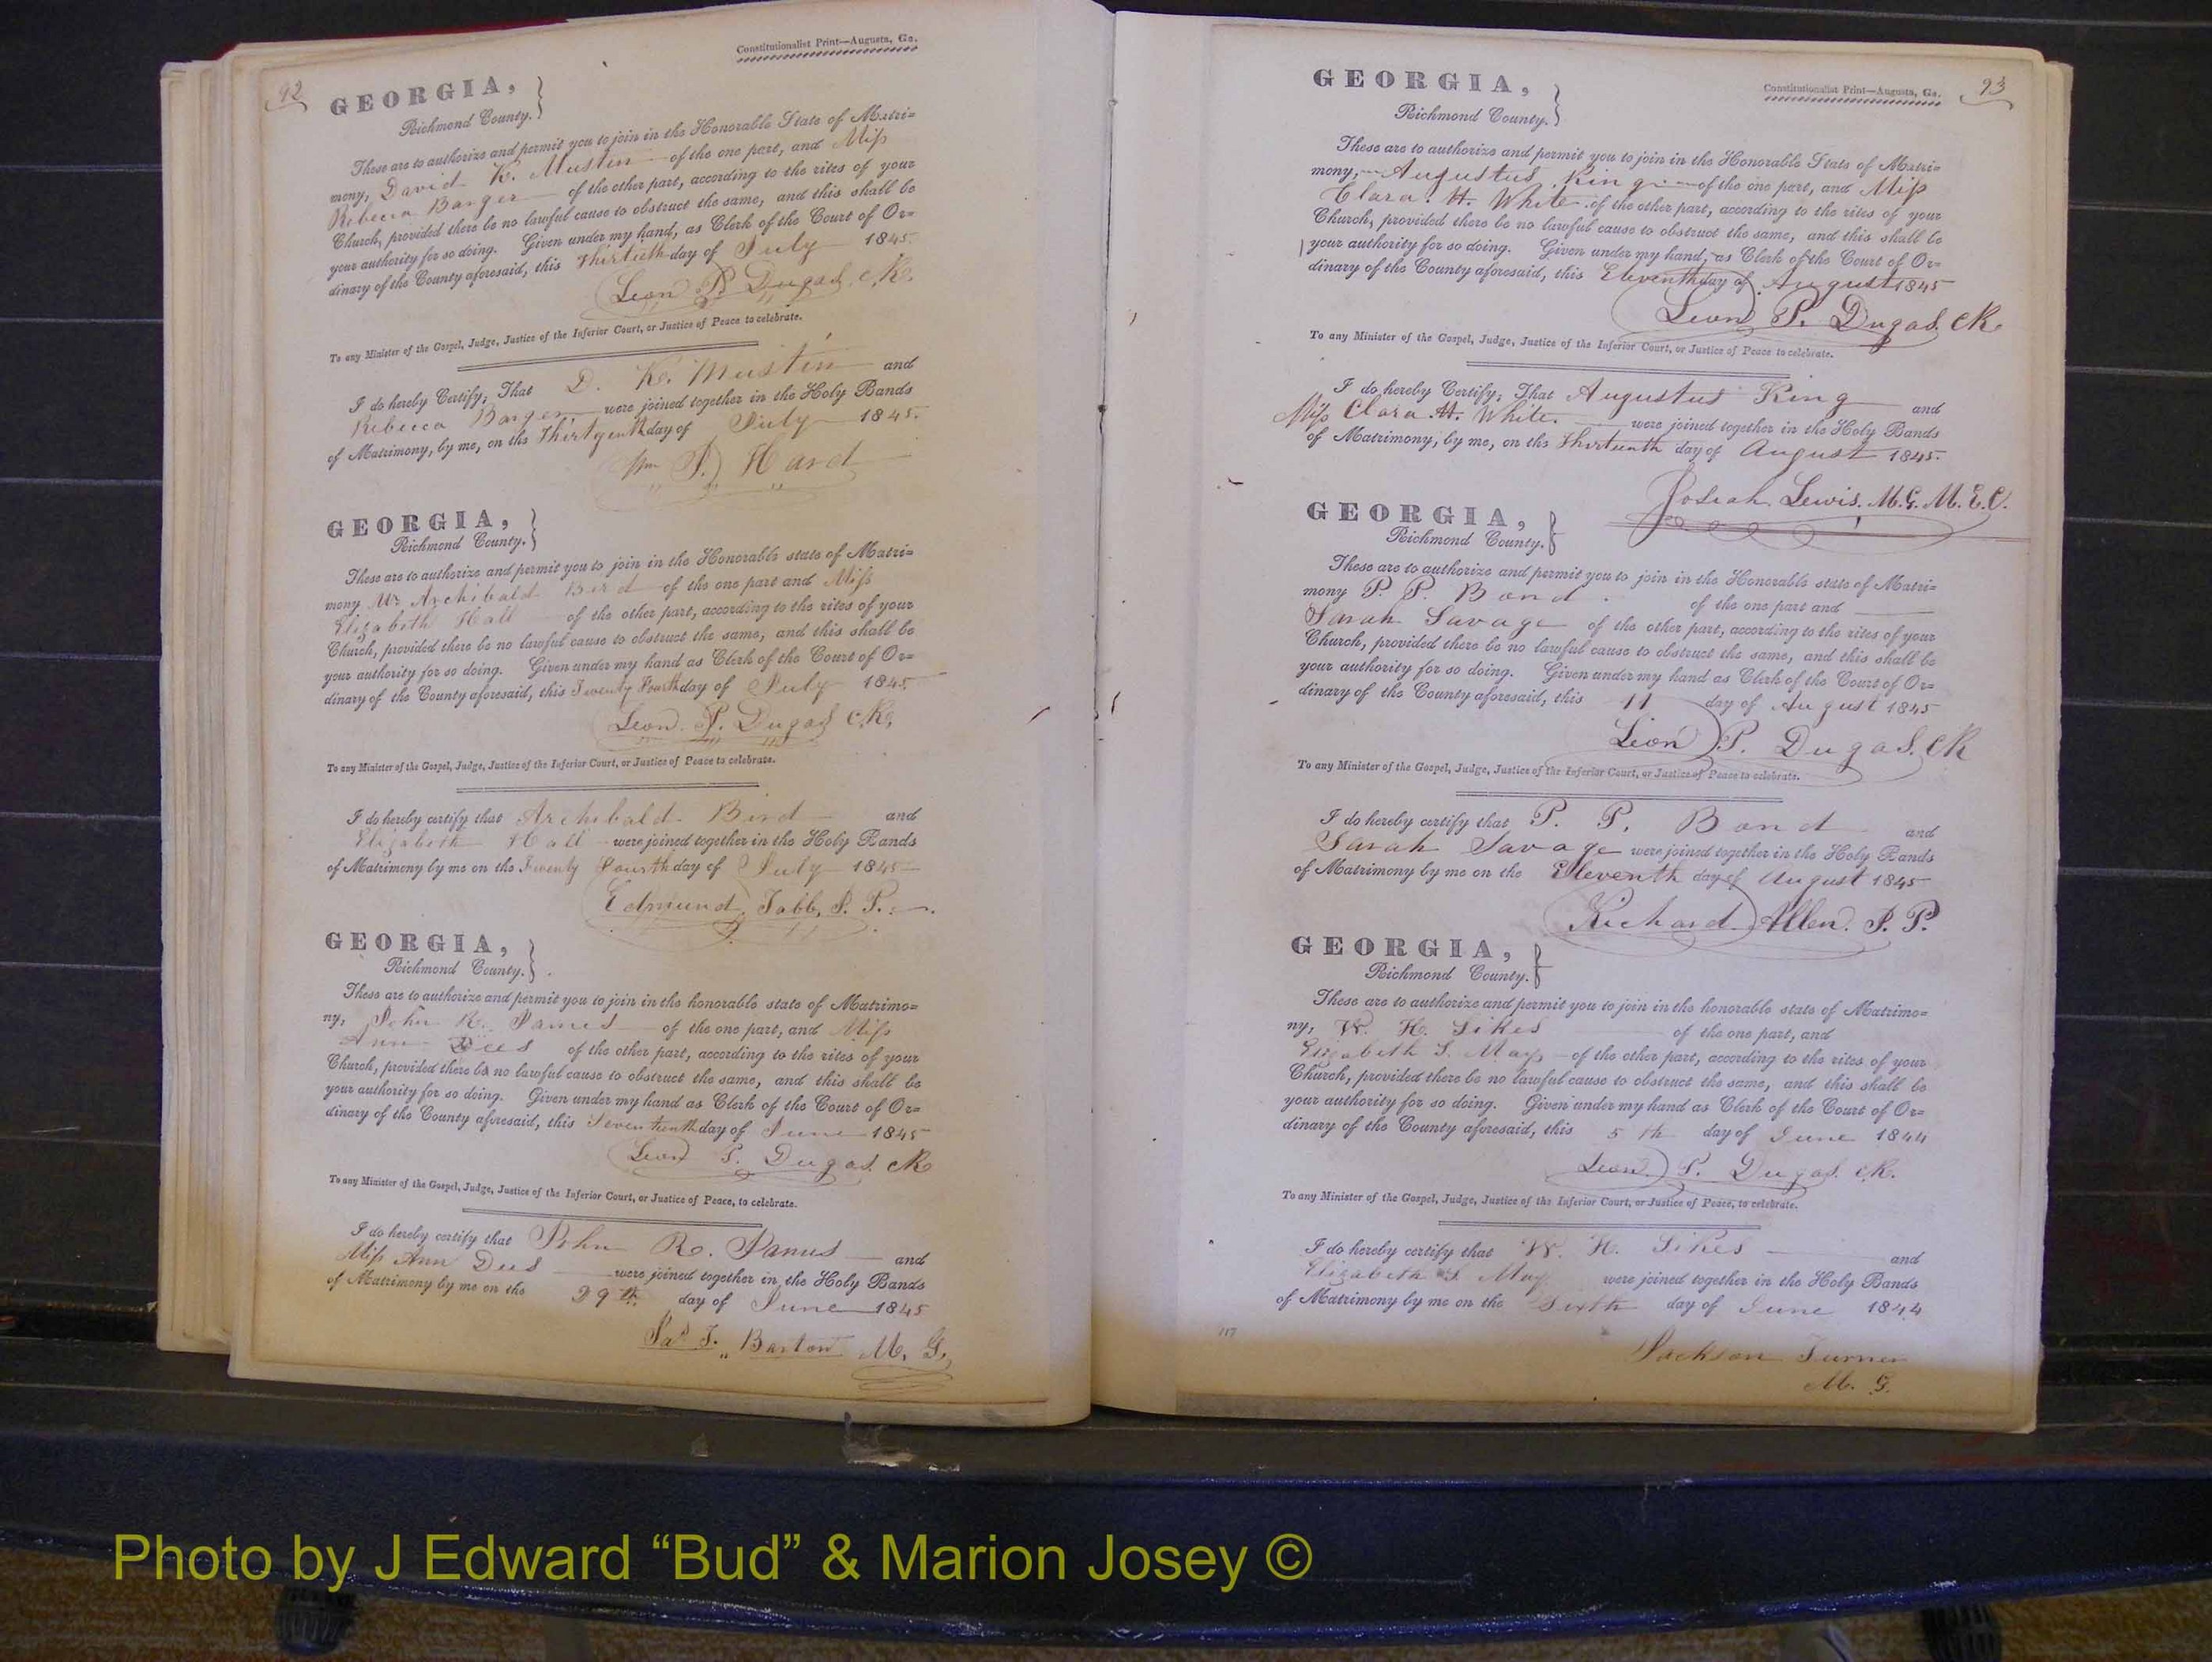 92
Constitutionalist Print—Augusta, Ga.
GEORGIA,
Richmond County.
These are to authorize and permit you to join in the Honorable State of Matri=
mony, David K. Mustin of the one part, and Miss
Rebecca Barger of the other part, according to the rites of your
Church, provided there be no lawful cause to obstruct the same, and this shall be
your authority for so doing. Given under my hand, as Clerk of the Court of Or=
dinary of the County aforesaid, this Thirtieth day of July 1845.
Leon P. Dugas, Clk.
To any Minister of the Gospel, Judge, Justice of the Inferior Court, or Justice of Peace to celebrate.
I do hereby Certify, That D. K. Mustin and
Rebecca Barger were joined together in the Holy Bands
of Matrimony, by me, on the day of July 1845.
Wm J. Hard
GEORGIA,
Richmond County.
These are to authorize and permit you to join in the Honorable state of Matri=
mony Mr Archibald Bird of the one part and Miss
Elizabeth Hall of the other part, according to the rites of your
Church, provided there be no lawful cause to obstruct the same, and this shall be
your authority for so doing. Given under my hand as Clerk of the Court of Or=
dinary of the County aforesaid, this Twenty Fourth day of July 1845.
Leon P. Dugas Clk.
To any Minister of the Gospel, Judge, Justice of the Inferior Court, or Justice of Peace to celebrate.
I do hereby certify that Archibald Bird and
Elizabeth Hall were joined together in the Holy Bands
of Matrimony by me on the Twenty Fourth day of July 1845
Edmund Tabb, J. P.
GEORGIA,
Richmond County.
These are to authorize and permit you to join in the honorable state of Matrimo=
ny, John R. of the one part, and Miss
Ann Dees of the other part, according to the rites of your
Church, provided there be no lawful cause to obstruct the same, and this shall be
your authority for so doing. Given under my hand as Clerk of the Court of Or=
dinary of the County aforesaid, this Seventeenth day of June 1845
Leon P. Dugas. Clk
To any Minister of the Gospel, Judge, Justice of the Inferior Court, or Justice of Peace, to celebrate.
I do hereby certify that John R. and
Miss Ann Dees were joined together in the Holy Bands
of Matrimony by me on the 29th day of June 1845
Jas T. Barton M. G.
GEORGIA,
Constitutionalist Print—Augusta, Ga.
93
Richmond County.
These are to authorize and permit you to join in the Honorable State of Matri=
mony, Augustus King of the one part, and Miss
Clara H. White of the other part, according to the rites of your
Church, provided there be no lawful cause to obstruct the same, and this shall be
your authority for so doing. Given under my hand, as Clerk of the Court of Or=
dinary of the County aforesaid, this Eleventh day of August 1845
Leon P. Dugas. Clk.
To any Minister of the Gospel, Judge, Justice of the Inferior Court, or Justice of Peace to celebrate.
I do hereby Certify, That Augustus King and
Miss Clara H. White. were joined together in the Holy Bands
of Matrimony, by me, on the Thirteenth day of August 1845.
Josiah Lewis. M.G. M.E.C.
GEORGIA,
Richmond County.
These are to authorize and permit you to join in the Honorable state of Matri=
mony P. P. Bond of the one part and
Sarah Savage of the other part, according to the rites of your
Church, provided there be no lawful cause to obstruct the same, and this shall be
your authority for so doing. Given under my hand as Clerk of the Court of Or=
dinary of the County aforesaid, this 11 day of August 1845
Leon P. Dugas. Clk
To any Minister of the Gospel, Judge, Justice of the Inferior Court, or Justice of Peace to celebrate.
I do hereby certify that P. P. Bond and
Sarah Savage were joined together in the Holy Bands
of Matrimony by me on the Eleventh day of August 1845
Richard Allen. J. P.
GEORGIA,
Richmond County.
These are to authorize and permit you to join in the honorable state of Matrimo=
ny, W. H. Sikes of the one part, and
Elizabeth S. May of the other part, according to the rites of your
Church, provided there be no lawful cause to obstruct the same, and this shall be
your authority for so doing. Given under my hand as Clerk of the Court of Or=
dinary of the County aforesaid, this 5th day of June 1844
Leon P. Dugas. Clk.
To any Minister of the Gospel, Judge, Justice of the Inferior Court, or Justice of Peace, to celebrate.
I do hereby certify that W. H. Sikes and
Elizabeth S. May were joined together in the Holy Bands
of Matrimony by me on the Sixth day of June 1844
117
Jackson Turner
M. G.
Photo by J Edward “Bud” & Marion Josey ©